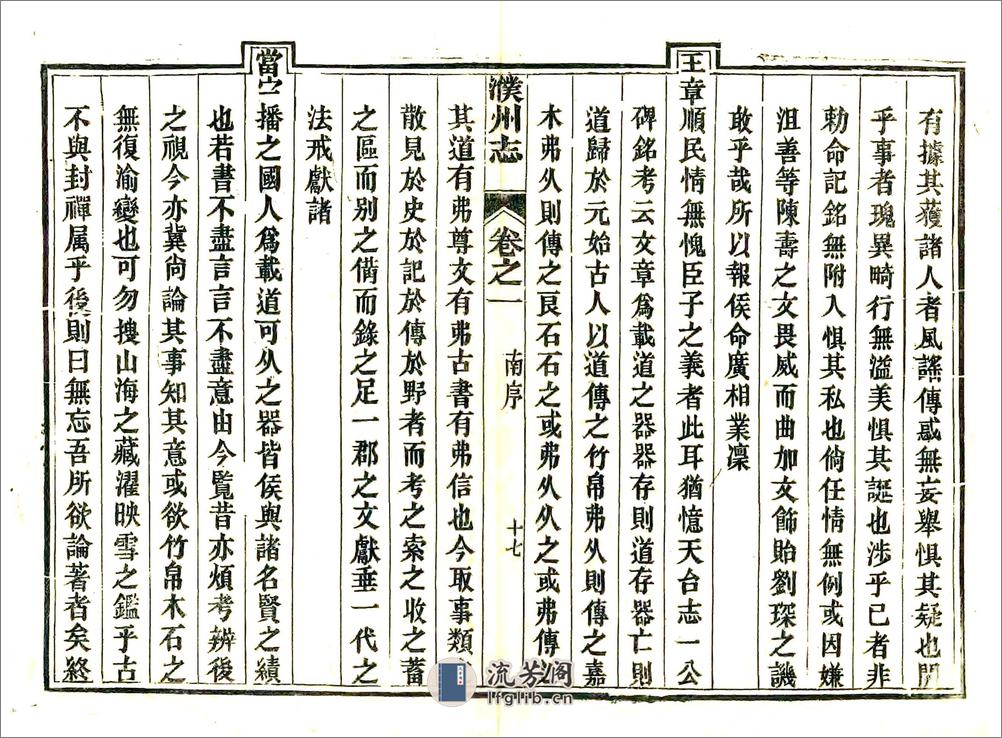 有據其蒐諸人者風謠傳惑無妄舉惧其疑也間
乎事者瑰異畸行無溢美惧其誕也涉乎已者非
勅命記銘無附入惧其私也倘任情無例或因嫌
沮善等陳壽之文畏威而曲加文飾貽劉琛之譏
敢乎哉所以報侯命廣相業凜
王章順民情無愧臣子之義者此耳猶憶天台志一公
碑銘考云文章爲載道之器器存則道存器亡則
道歸於元始古人以道傳之竹帛弗久則傳之嘉
木弗久則傳之良石石之或弗久久之或弗傳
濮州志 卷之一 南序 十七
其道有弗尊文有弗古書有弗信也今取事類
散見於史於記於傳於野者而考之索之收之蓄
之區而别之備而錄之足一郡之文獻垂一代之
法戒獻諸
當宁播之國人爲載道可久之器皆侯與諸名賢之績
也若書不盡言言不盡意由今覽昔亦煩考辨後
之視今亦冀尚論其事知其意或欲竹帛木石之
無復渝變也可勿搜山海之藏濯映雪之鑑乎古
不與封禪属乎後則曰無忘吾所欲論著者矣終
流芳阁
lfglib.cn